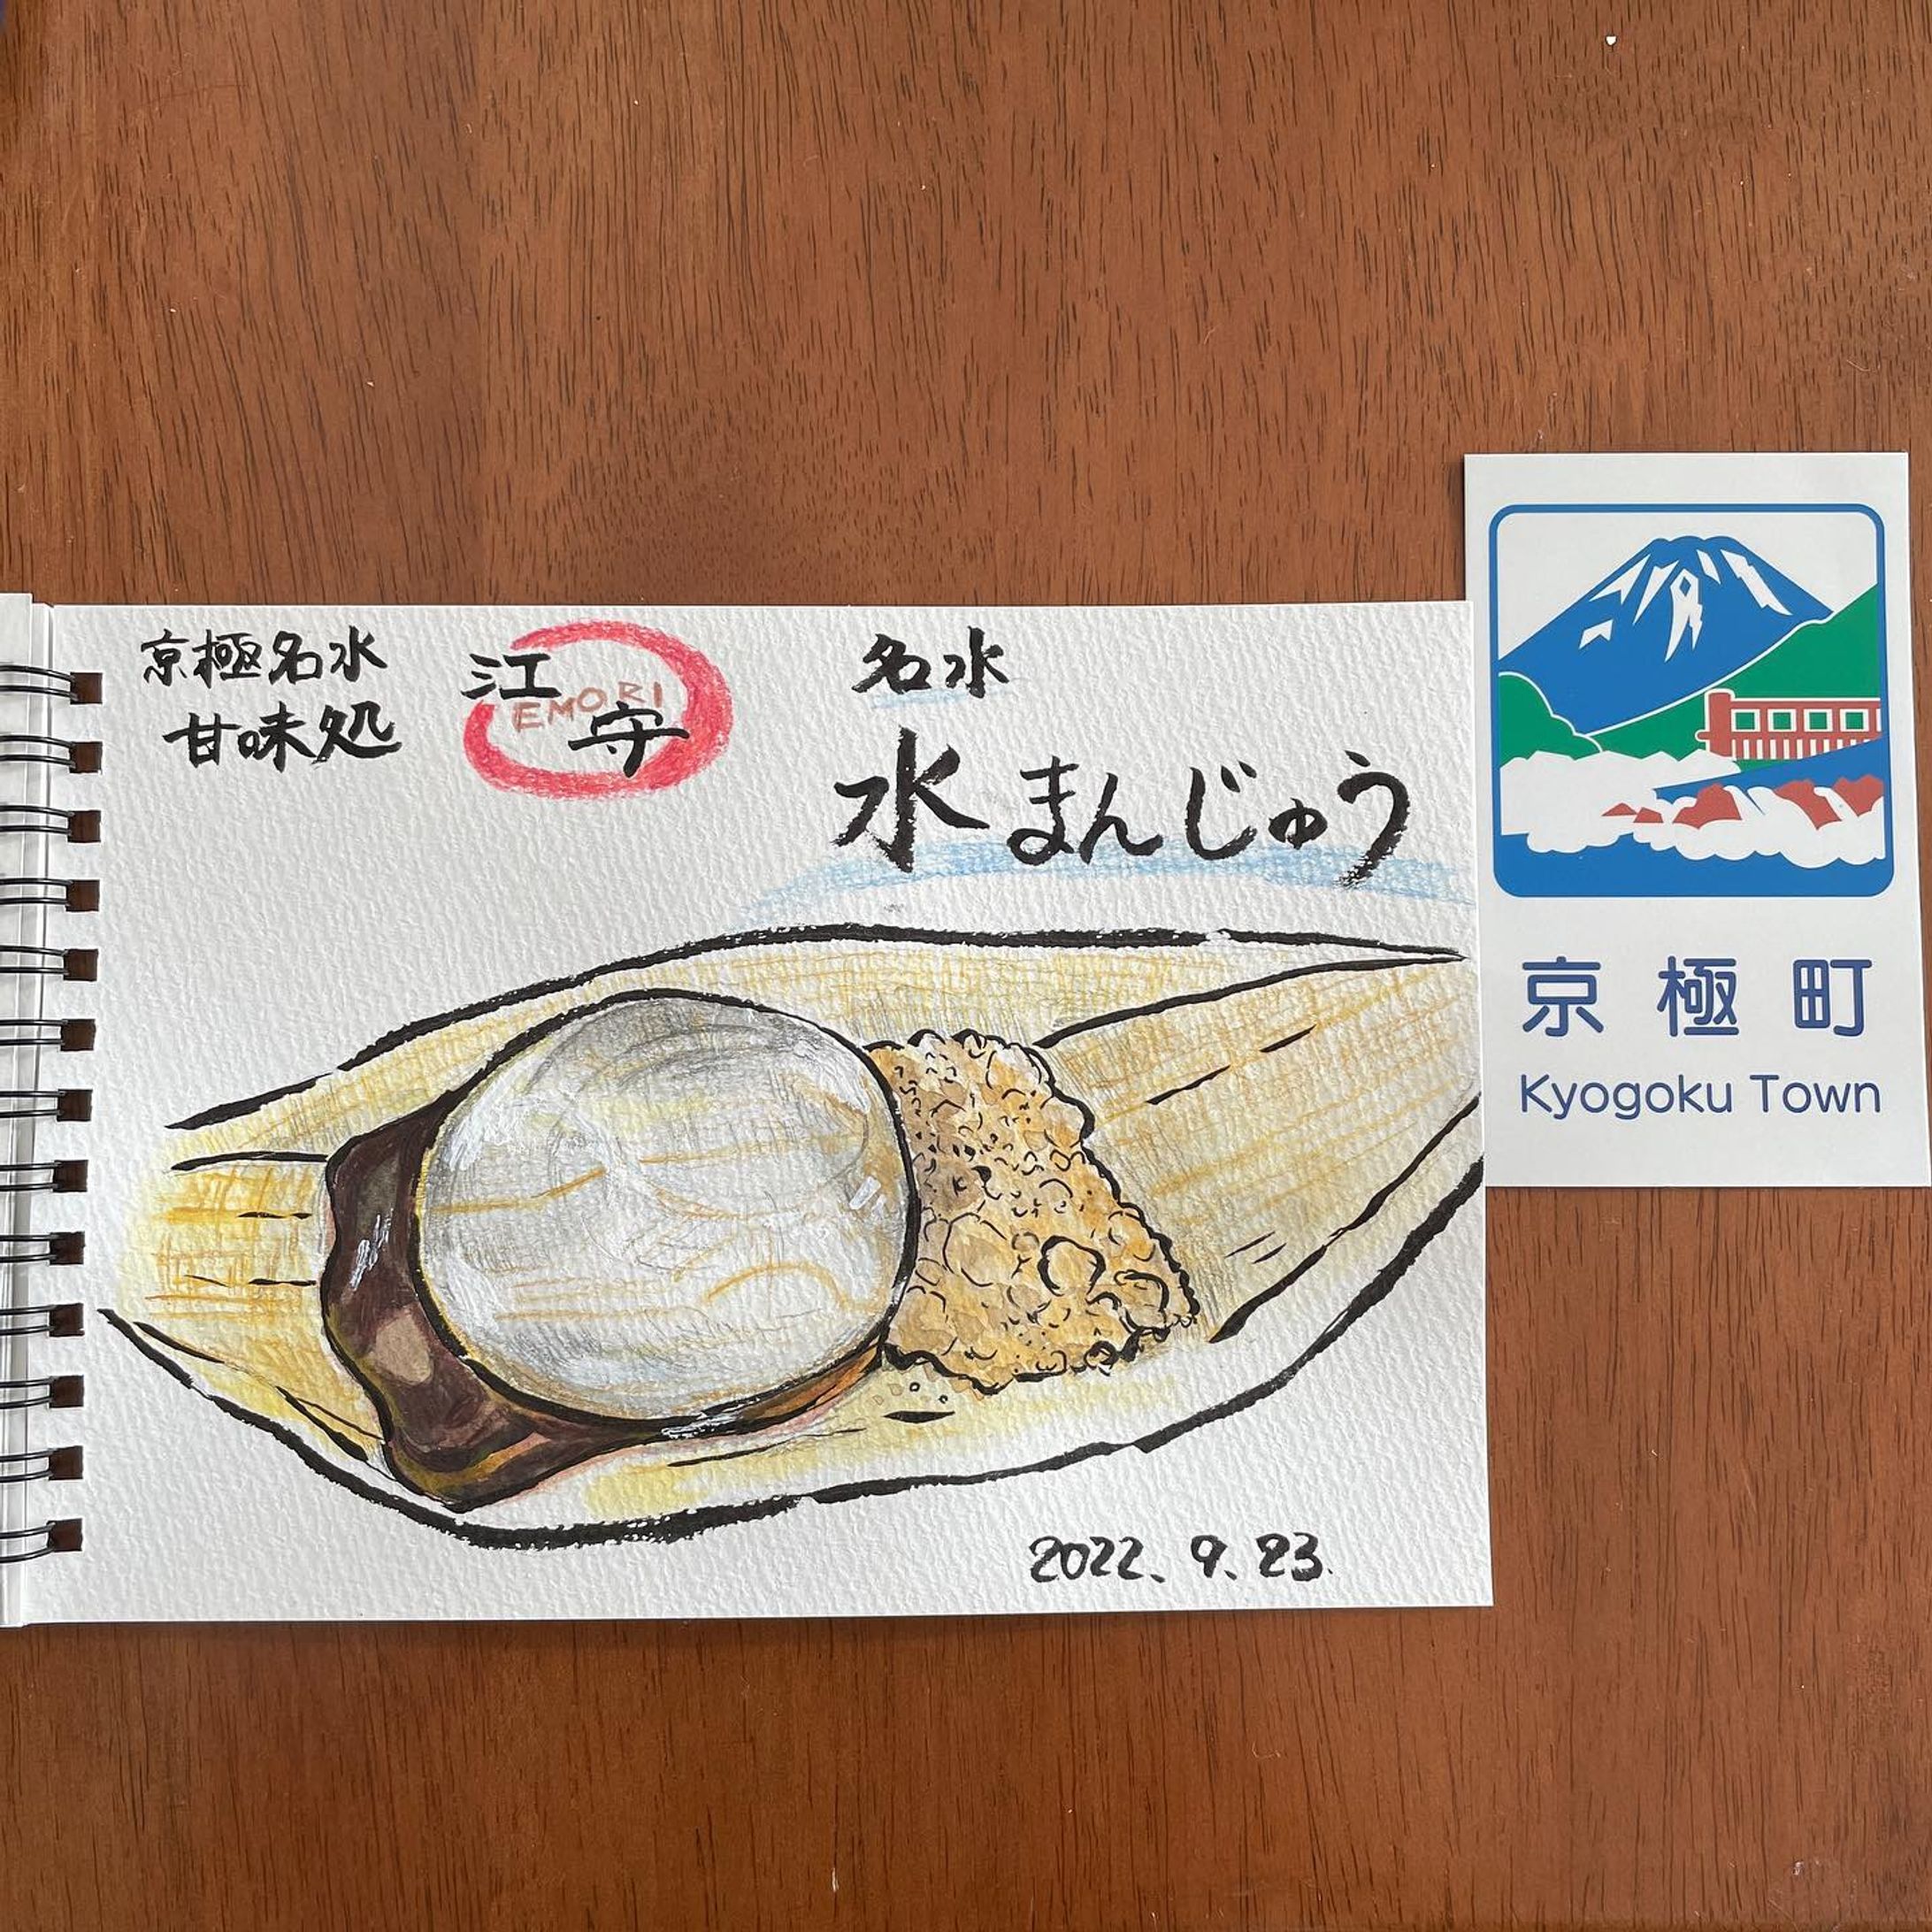 京極名水
甘味処
江守
EMORI
名水
水まんじゅう
2022.9.23.
京極町
Kyogoku Town